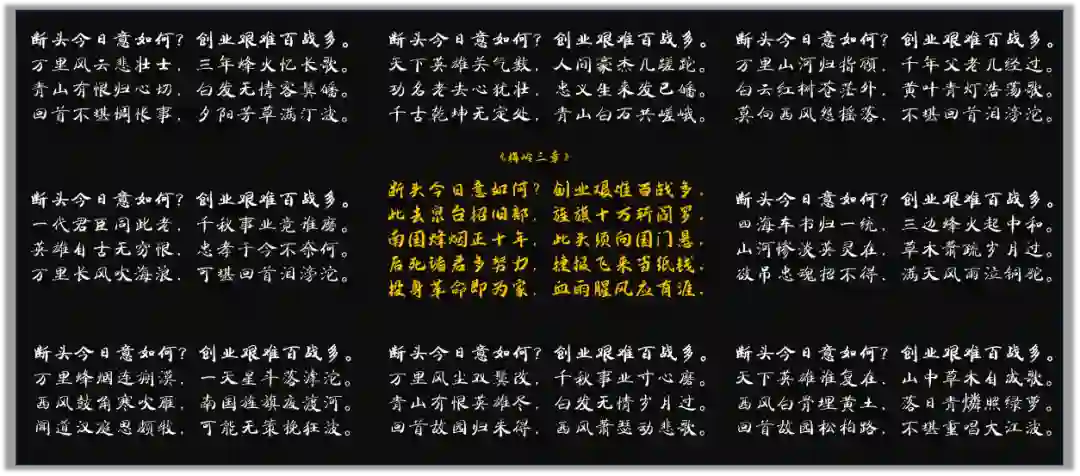 断头今日意如何？创业艰难百战多。
万里风云悲壮士，三年烽火忆长歌。
青山有恨归心切，白发无情客鬓皤。
回首不堪惆怅事，夕阳芳草满汀波。
断头今日意如何？创业艰难百战多。
天下英雄关气数，人间豪杰几蹉跎。
功名老去心犹壮，忠义生来发已皤。
千古乾坤无定处，青山白万共嵯峨。
断头今日意如何？创业艰难百战多。
万里山河归指顾，千年父老几经过。
白云红树苍茫外，黄叶青灯浩荡歌。
莫向西风怨摇落，不堪回首泪滂沱。
断头今日意如何？创业艰难百战多。
一代君臣同此老，千秋事业竟谁磨。
英雄自古无穷恨，忠孝于今不奈何。
万里长风吹海浪，可堪回首泪滂沱。
《梅岭三章》
断头今日意如何？创业艰难百战多。
此去泉台招旧部，旌旗十万斩阎罗。
南国烽烟正十年，此头须向国门悬。
后死诸君多努力，捷报飞来当纸钱。
投身革命即为家，血雨腥风应有涯。
断头今日意如何？创业艰难百战多。
四海车书归一统，三边烽火起中和。
山河惨淡英灵在，草木萧疏岁月过。
欲吊忠魂招不得，满天风雨泣铜驼。
断头今日意如何？创业艰难百战多。
万里烽烟连朔漠，一天星斗落滹沱。
西风鼓角寒吹雁，南国旌旗夜渡河。
闻道汉庭思颇牧，可能无策挽狂波。
断头今日意如何？创业艰难百战多。
万里风尘双鬓改，千秋事业寸心磨。
青山有恨英雄尽，白发无情岁月过。
回首故园归未得，西风萧瑟动悲歌。
断头今日意如何？创业艰难百战多。
天下英雄谁复在，山中草木自成歌。
西风白骨埋黄土，落日青燐照绿萝。
回首故园松柏路，不堪重唱大江波。